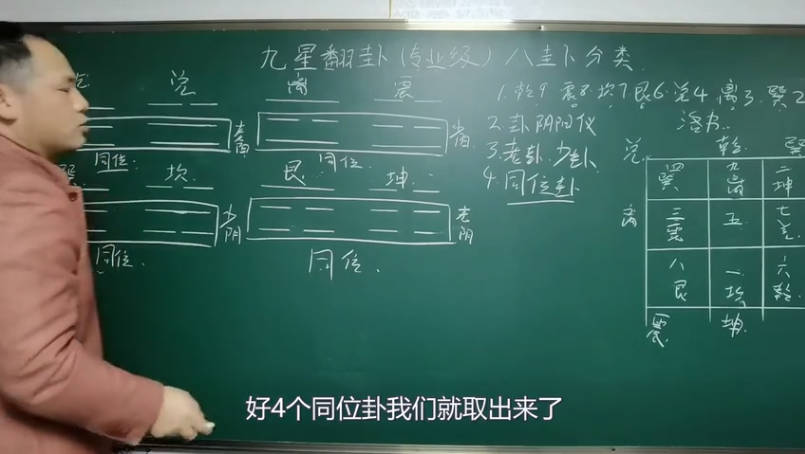 九星翻卦(专业级)八卦卜分类
兑 离 震
1.乾9 震8 坎7 艮6 兑4 离3 巽2
同位 同位 少阳
2.卦阴阳仪
活力
3.老卦 少卦
4.同位卦
坎 艮 坤
少阴 老阴
同位 同位
兑 乾 巽
四巽 九离 二坤
离 三震 五 七兑
八艮 一坎 六乾
震 坤
好4个同位卦我们就取出来了